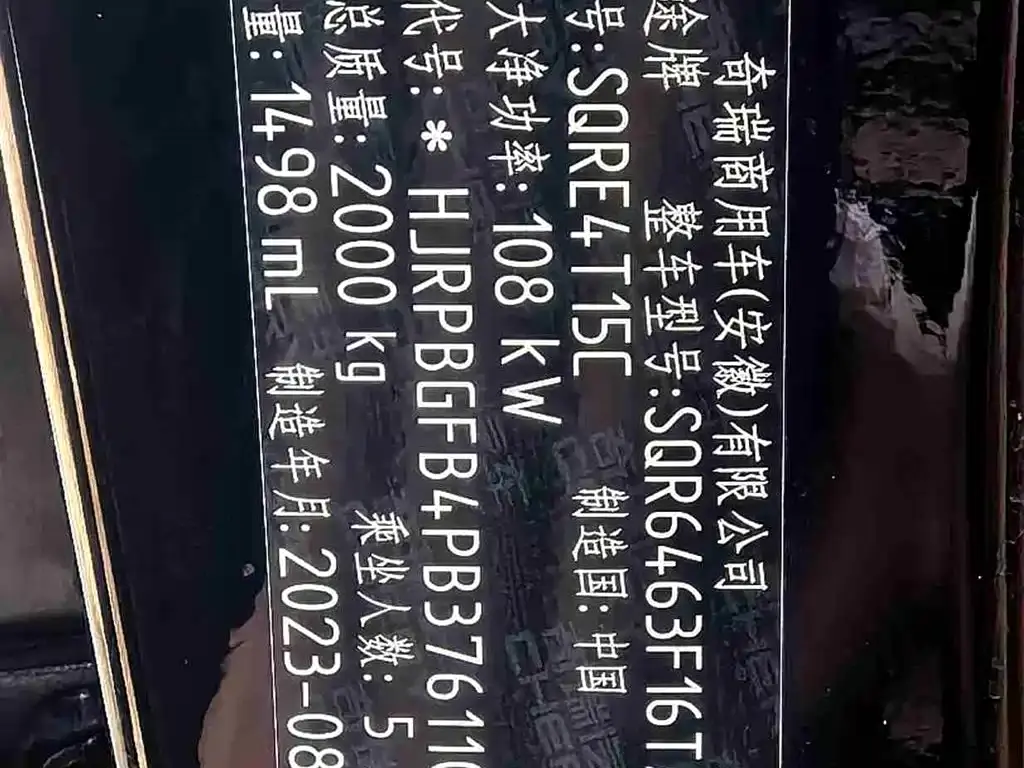 奇瑞商用车(安徽)有限公司
途牌 整车型号:SQR6463F16T
号:SQRE4T15C 制造国:中国
大净功率:108 kW
代号:* HJRPBGFB4PB37611
总质量:2000 kg 乘坐人数: 5
量: 1498 mL 制造年月:2023-08